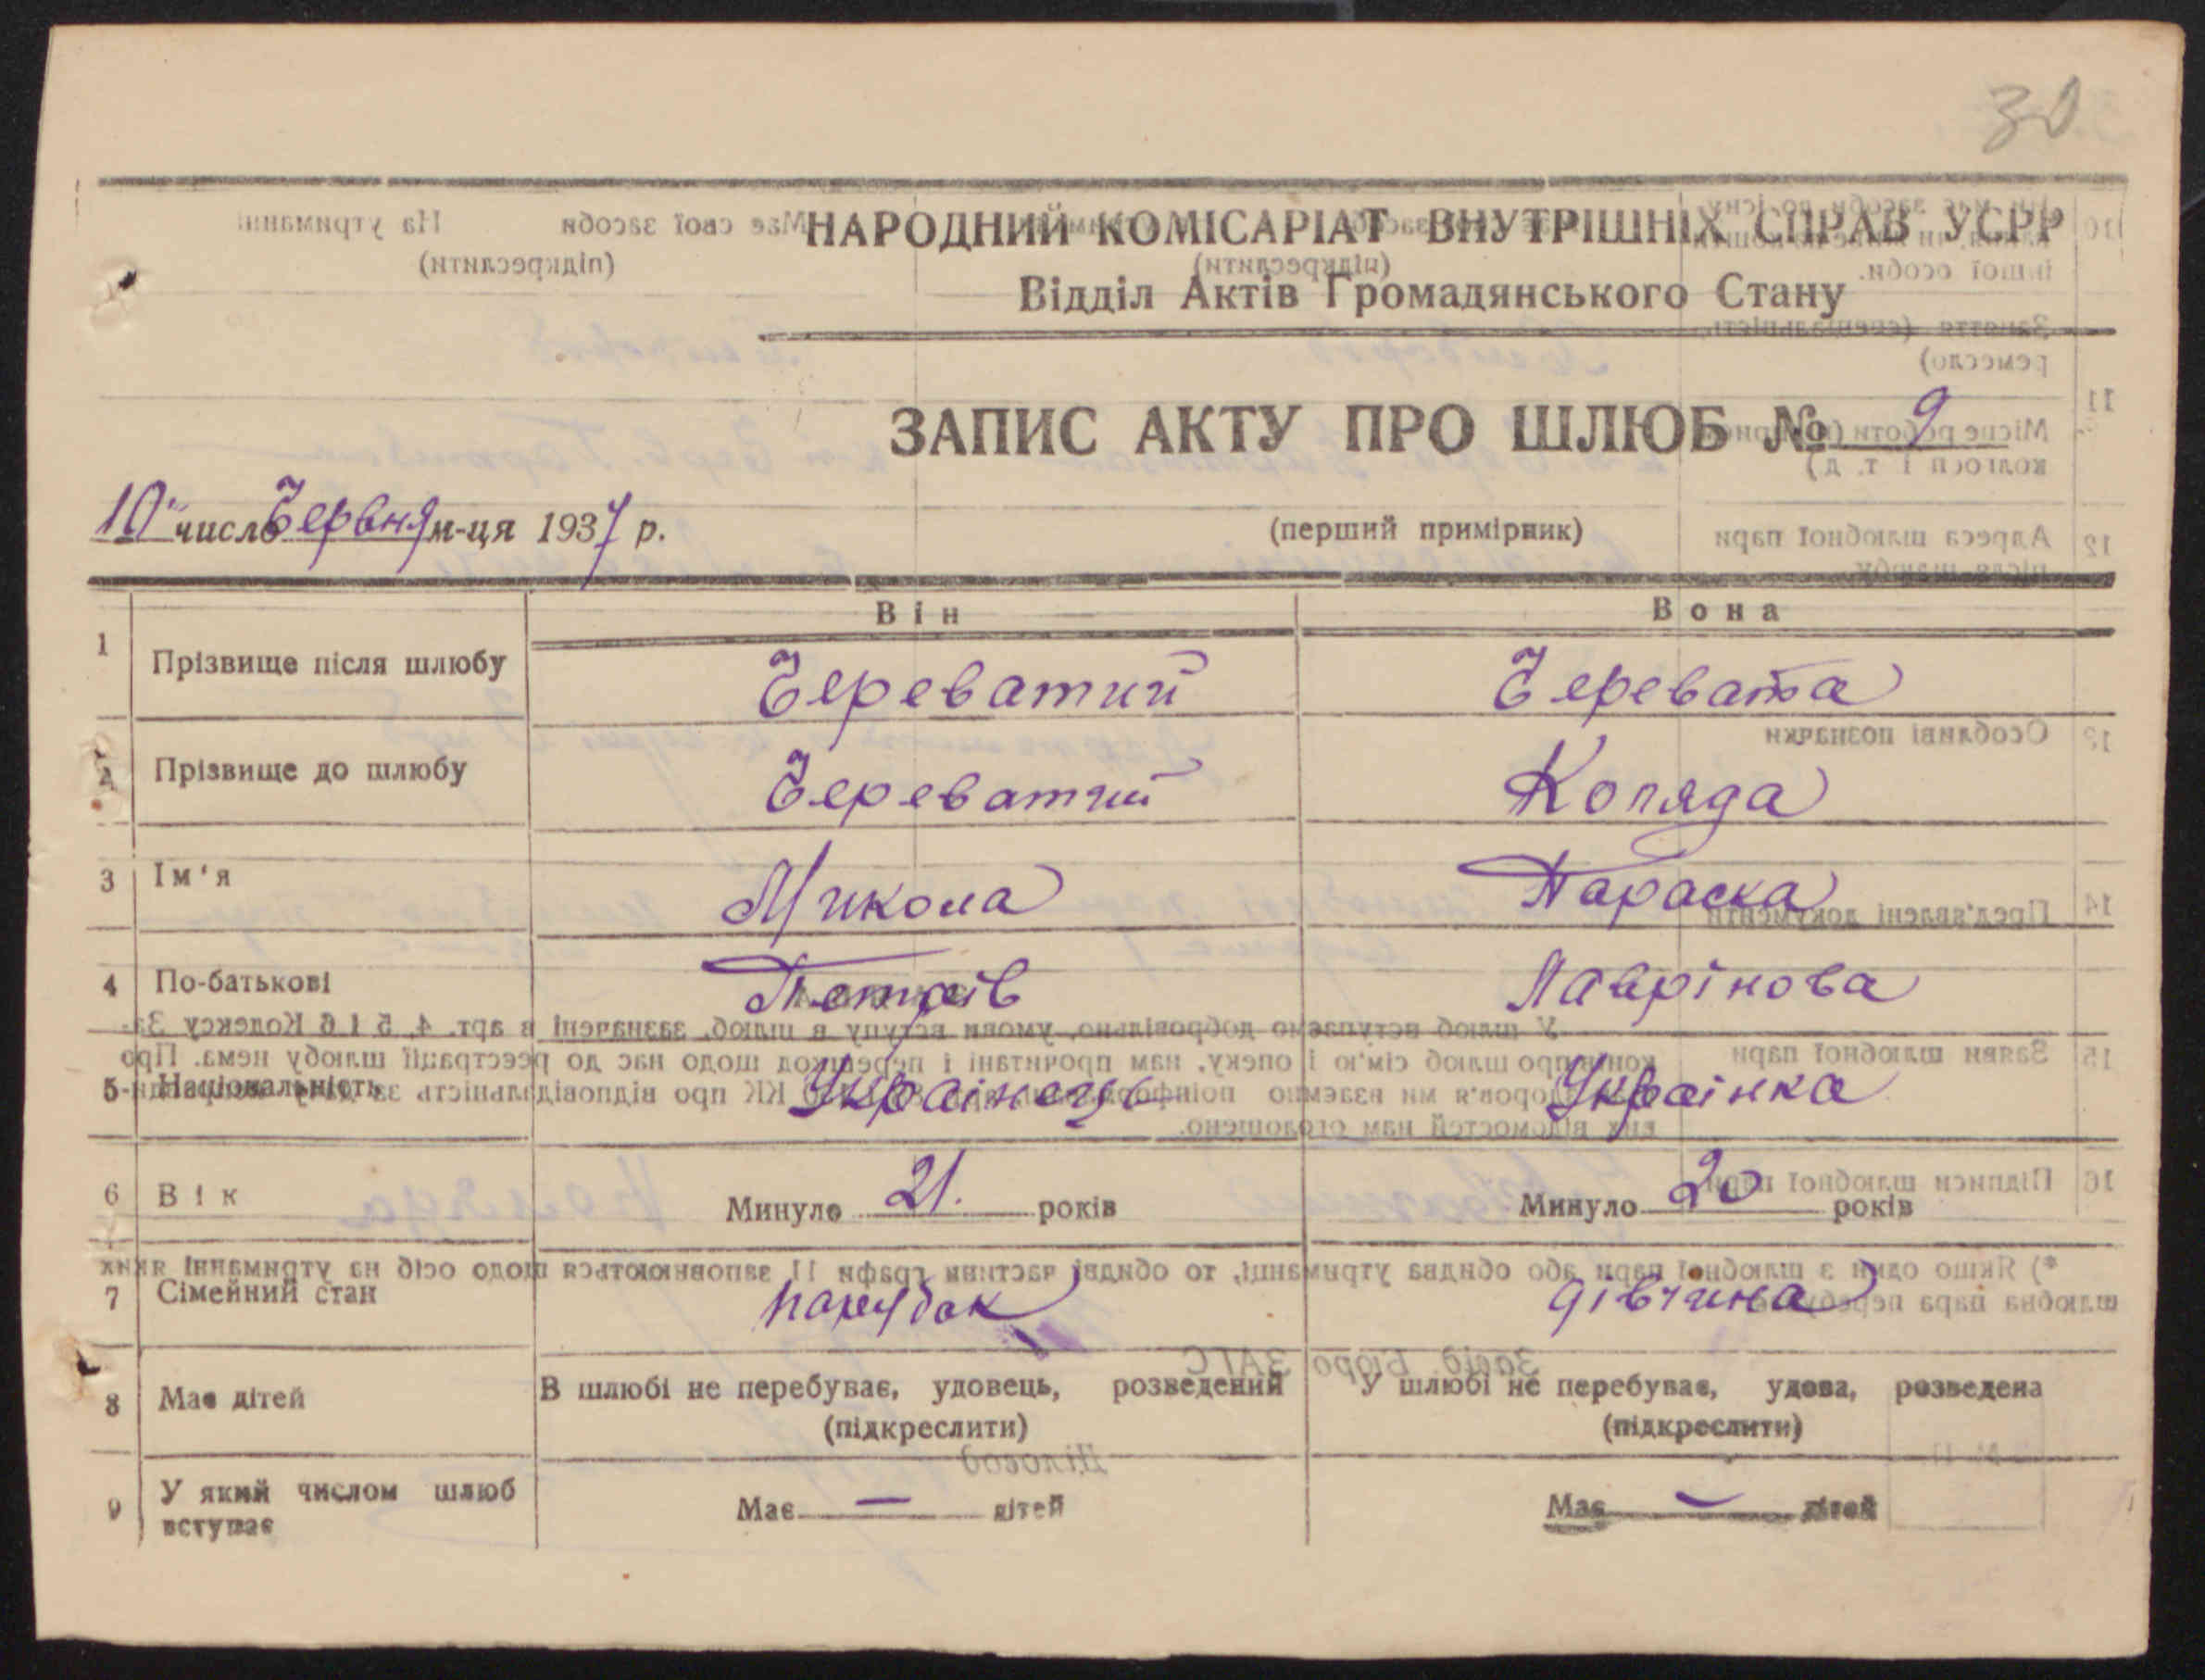 30
НАРОДНИЙ КОМІСАРІАТ ВНУТРІШНІХ СПРАВ УСРР
Відділ Актів Громадянського Стану
ЗАПИС АКТУ ПРО ШЛЮБ № 9
10 число Червня м-ця 1937 р.
(перший примірник)
Він Вона
1 Прізвище після шлюбу Череватий Черевата
2 Прізвище до шлюбу Череватий Коляда
3 Ім'я Микола Параска
4 По-батькові Петрів Лаврінова
5 Національність Українець Українка
6 Вік Минуло 21. років Минуло 20 років
7 Сімейний стан парубок дівчина
8 Має дітей В шлюбі не перебуває, удовець, розведений У шлюбі не перебуває, удова, розведена
(підкреслити) (підкреслити)
9 У який числом шлюб вступає Має — дітей Має — дітей